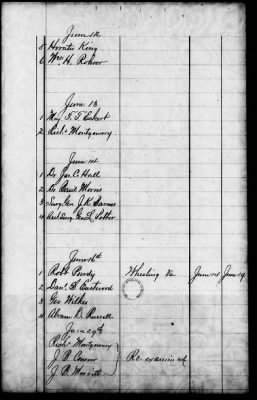 June 12
5 Horatio King
6 Wm. H. Rohrer
June 13
1 Maj T. T. Eckert
2 Richd Montgomery
June 14
1 Dr Jas. C. Hall
2 Dr Basil Norris
3 Surg. Gen J. K. Barnes
4 Geo. L. Porter
June 16th
1 Robt Purdy Wheeling Va June 14 June 19
2 Danl. S. Eastwood
3 Geo Wilkes
4 Abram D. Russell
June 29th
Richd Montgomery
J. B. Conver
J. B. Merritt
Re-examined